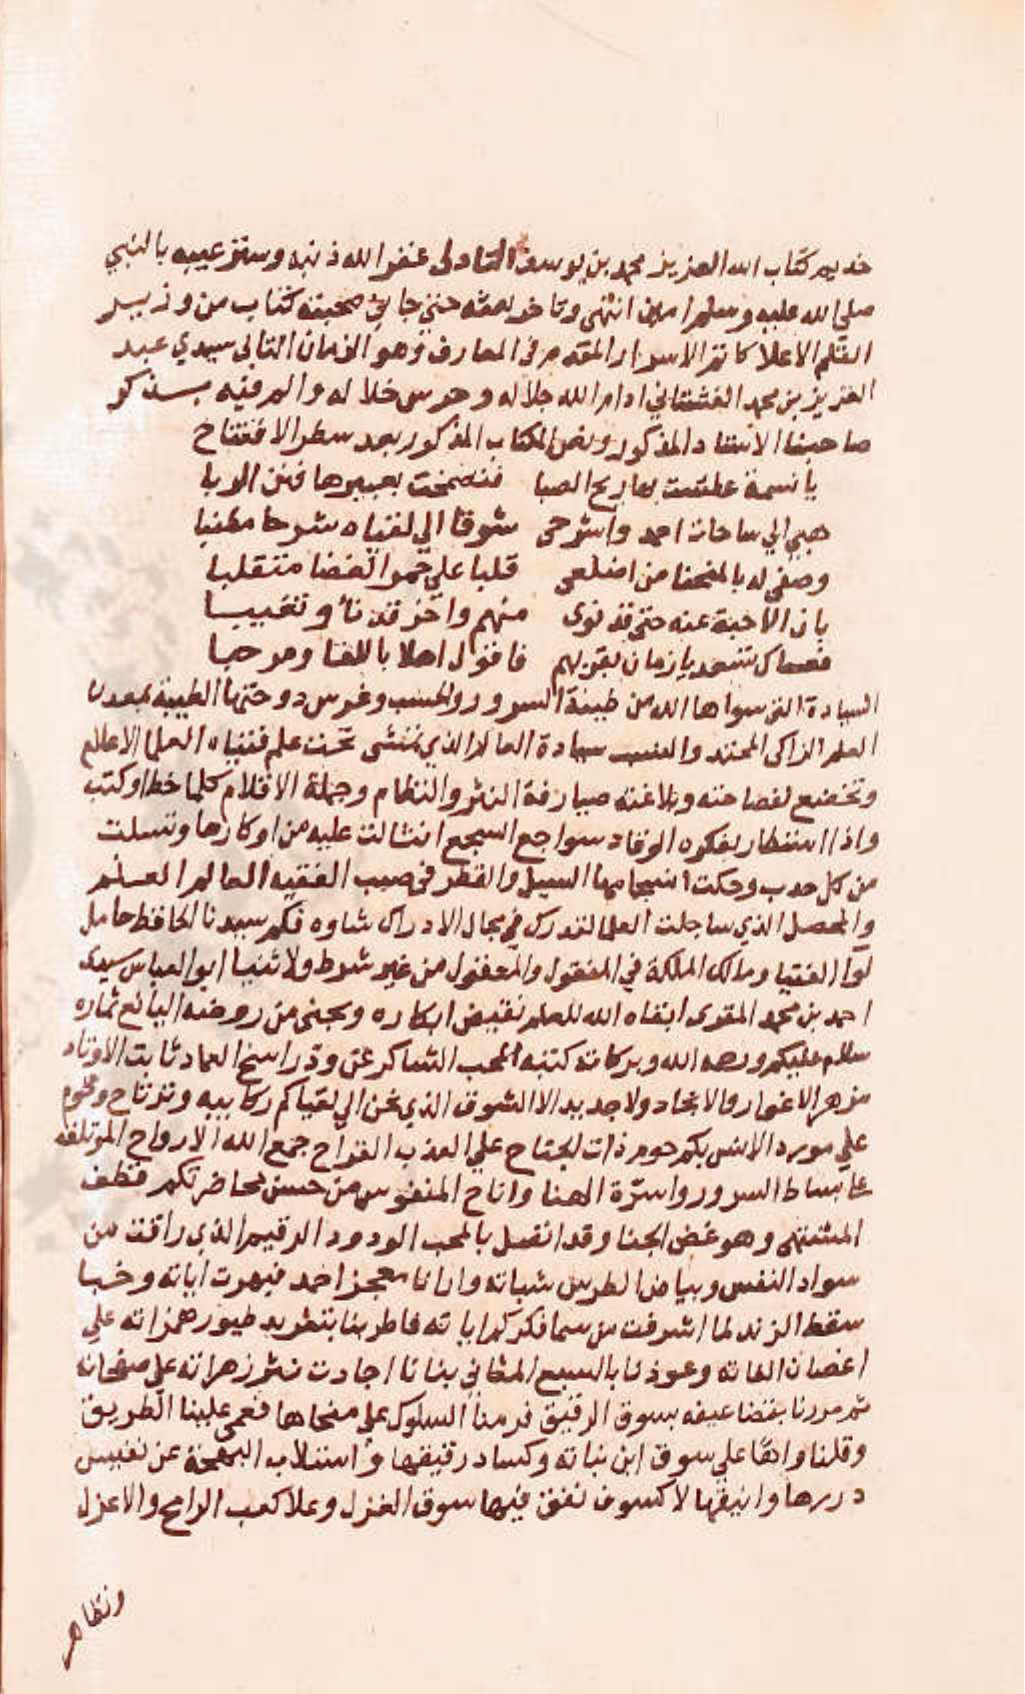 خديم كتاب الله العزيز محمد بن يوسف التادلى غفر الله ذنبه وستر عيبه بالنبي
صلي الله عليه وسلم امين انتهى وتاخر بعثه حتي جاني صحبته كتاب من وزير
القلم الاعلا كاتم الاسرار المقدم في المعارف وهو الزمان التالى سيدي عبد
العزيز بن محمد الفشتالي ادام الله جلاله وحرس خلاله والم فيه بذكر
صاحبنا الاستاذ المذكور ونص المكتاب المذكور بعد سطر الافتتاح
يا نسمة عطست بها ريح الصبا فتضمخت بعبيرها قنن الربا
هبي الي ساحات احمد واشرحى شوقا الي لقياه شرحا مطنبا
وصفي له بالمنحنا من اضلعى قلبا علي جمر الغضا متقلبا
بان الاحبة عنه حتي قد نوى منهم واخر قد نأ وتغيبا
فعساك تسعد يا زمان بقربهم فاقول اهلا باللقا ومرحبا
السيادة التى سواها الله من طينة السرور والحسب وغرس دوحتها الطيبة بمعدن
العلم الزاكى المحتد والنسب سيادة العالم الذي تمشى تحت علم فتياه العلما الاعلام
وتخضع لفصاحته وبلاغته صيارفة النثر والنظام وحملة الاقلام كلما خط او كتب
واذا استطار بفكره الوقاد سواجع السجع انثالت عليه من اوكارها ونسلت
من كل حدب وحكت انسجامها السيل والقطر فى صبب الفقيه العالم العلم
والمحصل الذي ساجلت العلما لتدرك في مجال الادراك شاوه فلم سيدنا الحافظ حامل
لوا الفتيا ومالك الملكة في المنقول والمعقول من غير شرط ولا ثنيا ابو العباس سيدى
احمد بن محمد المقرى ابقاه الله للعلم نقيض ابكاره ويجنى من روضه اليانع ثماره
سلام عليكم ورحمه الله وبركاته كتبه المحب الشاكر عن ود راسخ العماد ثابت الاوتاد
مزهر الاغوار والانجاد ولا جديد الا الشوق الذي تحن الي لقياكم ركايبه وترتاح وتحوم
علي مورد الانس بكم حوم ذات الجناح علي العذب القراح جمع الله الارواح الموتلفه
علي بساط السرور واسرة الهنا واتاح المنفوس من حسن محاضرتكم قطف
المشتهى وهو غض الجنا وقد اتصل بالمحب الودود الرقيم الذي راقت من
سواد النفس وبياض الطرس شياته وارانا معجز احمد فبهرت اياته وخبا
سقط الزند لما اشرقت من سما فكركم اياته فاطربنا بتغريد طيور همزاته علي
اغصان الفاته وعوذنا بالسبع المثاني بنانا اجادت نثر زهراته علي صفحاته
ثم مررنا بقضاعيفه بسوق الرقيق فرمنا السلوك علي منحاها فعمى علينا الطريق
وقلنا واها علي سوق ابن نباته وكساد رقيقها واستلاب البهجة عن نفيس
دررها وانيقها لا كسوف نفق فيها سوق الغزل وعلا كعب الرامح والاعزل
وتظاهر